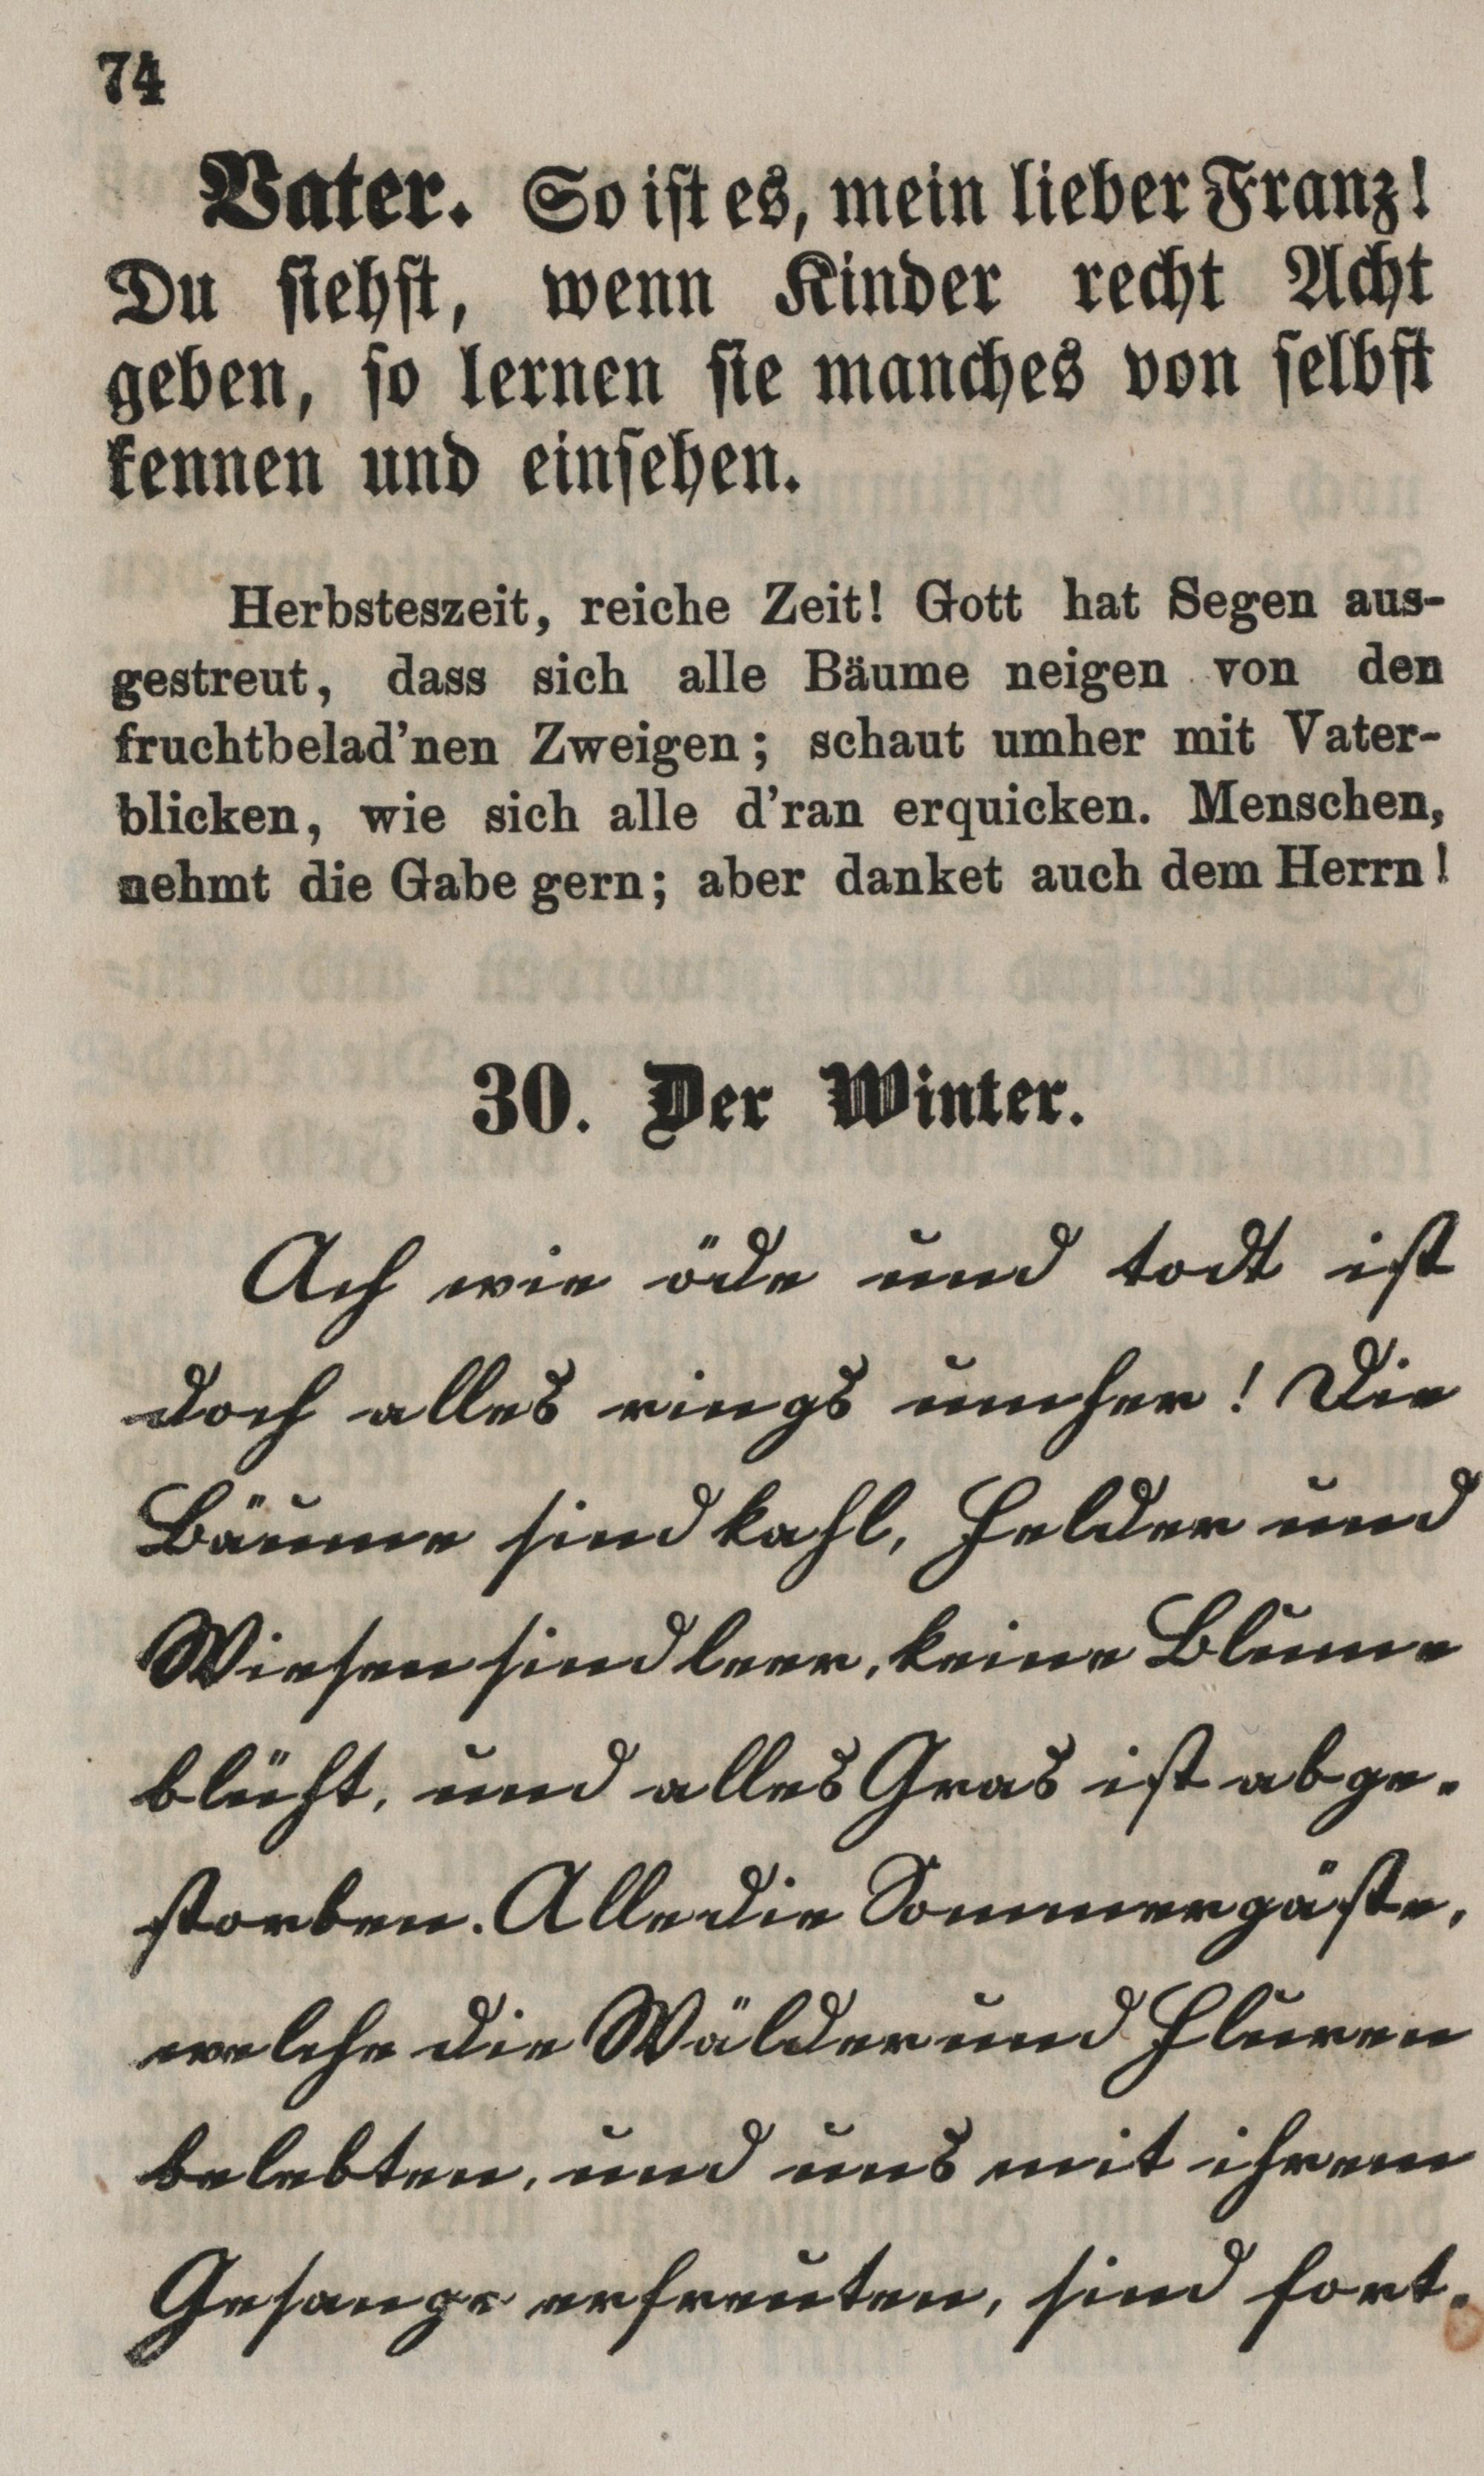 74
Vater. So ist es, mein lieber Franz!
Du siehst, wenn Kinder recht Acht
geben, so lernen sie manches von selbst
kennen und einsehen.
Herbsteszeit, reiche Zeit! Gott hat Segen aus-
gestreut, dass sich alle Bäume neigen von den
fruchtbelad'nen Zweigen; schaut umher mit Vater-
blicken, wie sich alle d'ran erquicken. Menschen,
nehmt die Gabe gern; aber danket auch dem Herrn!
30. Der Winter.
Ach wie öde und todt ist
doch alles rings umher! Die
Bäume sind kahl, Felder und
Wiesen sind leer, keine Blume
blüht, und alles Gras ist abge-
storben. Alle die Sommergäste,
welche die Wälder und Fluren
belebten, und uns mit ihrem
Gesange erfreuten, sind fort.